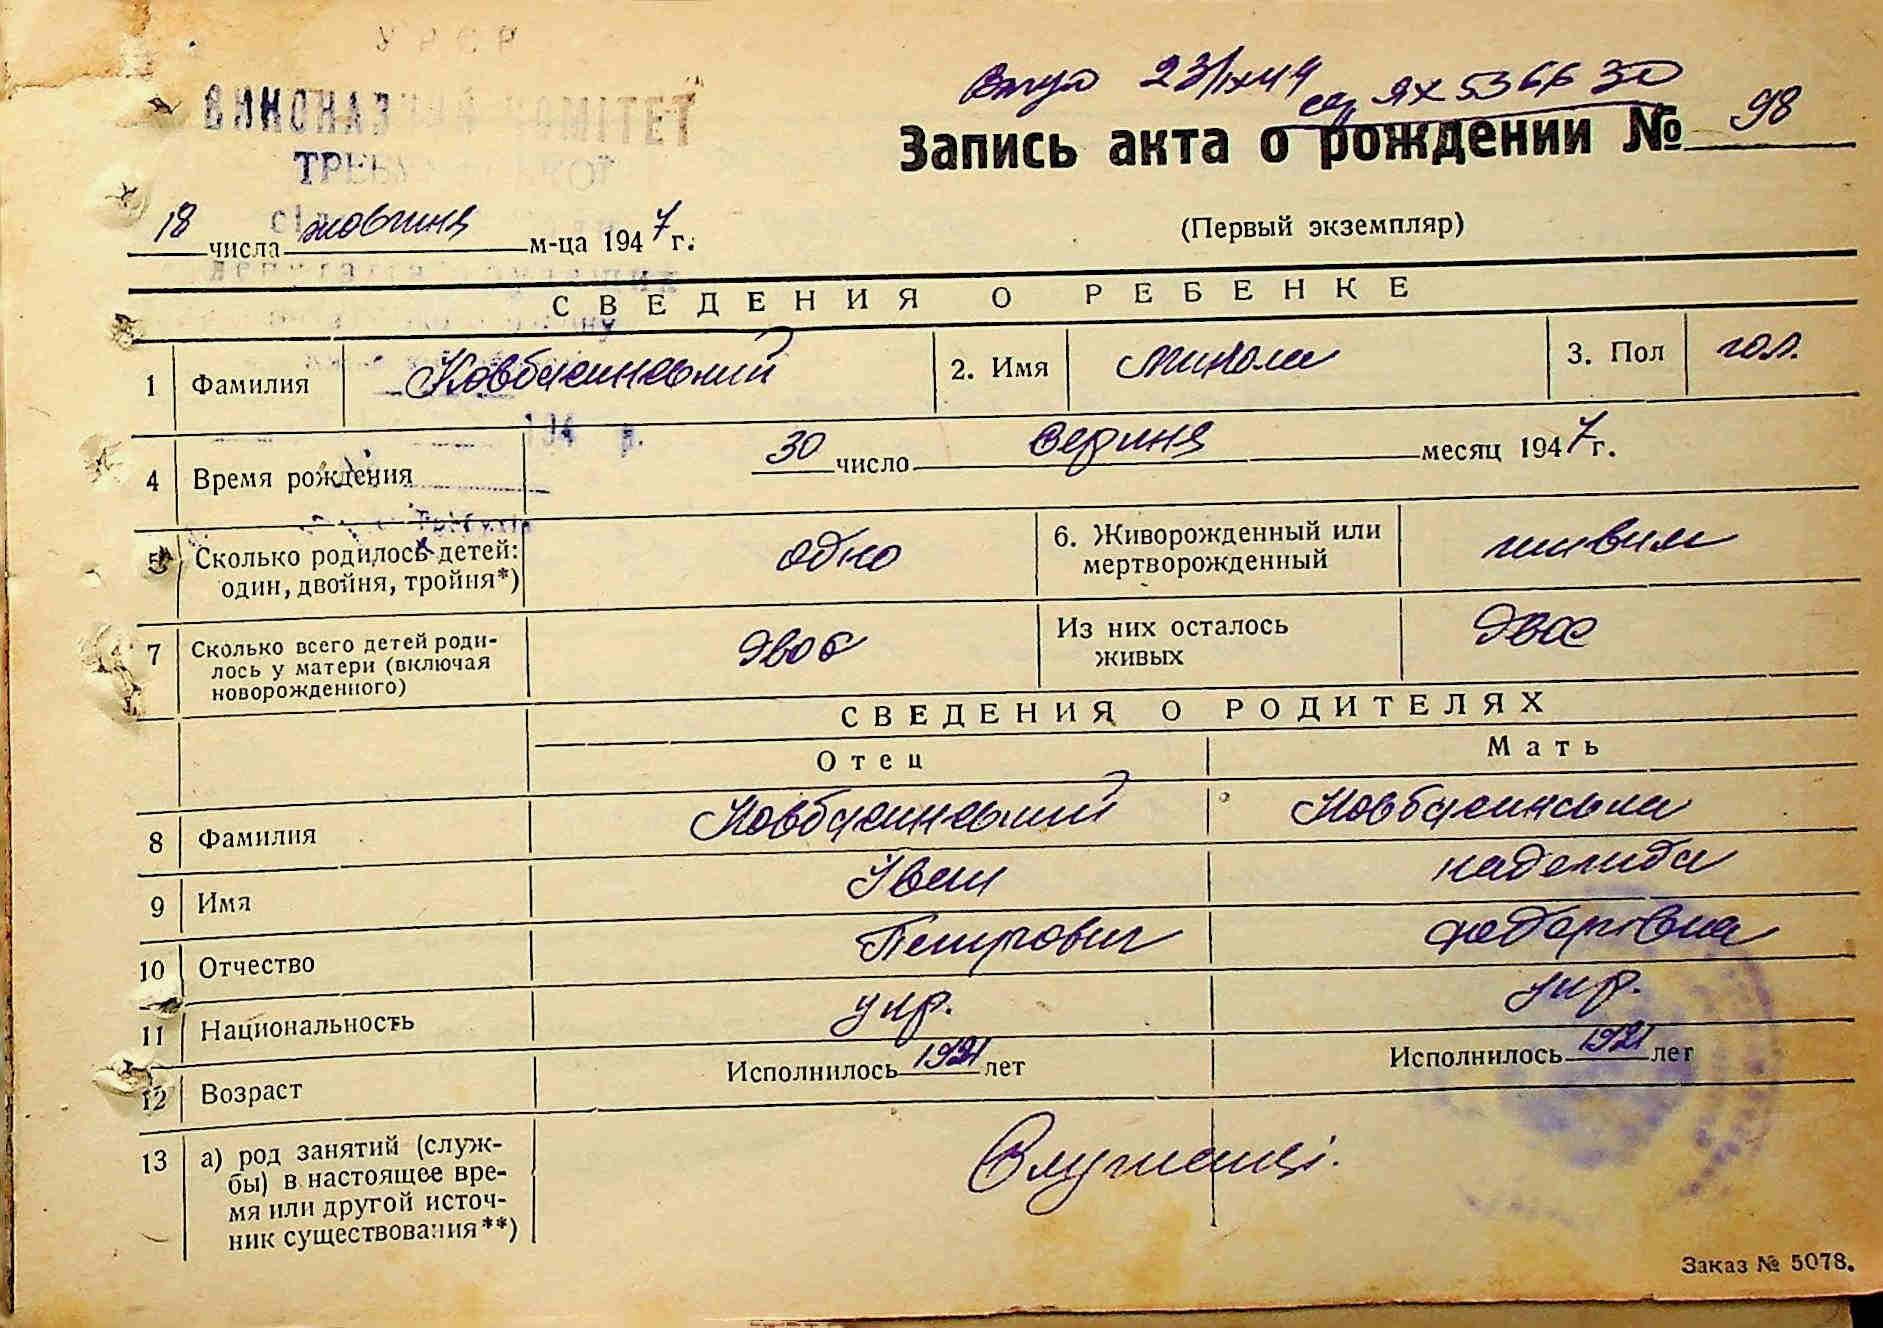 УРСР
ВИКОНАВЧИЙ КОМІТЕТ
23/ІХ 44
Запись акта о рождении № 98
18 числа жовтня м-ца 1947 г.
(Первый экземпляр)
СВЕДЕНИЯ О РЕБЕНКЕ
1 Фамилия Ковбасинський 2. Имя Микола 3. Пол чол.
4 Время рождения 30 число вересня месяц 1947 г.
5 Сколько родилось детей: один, двойня, тройня*) одно 6. Живорожденный или мертворожденный живим
7 Сколько всего детей родилось у матери (включая новорожденного) двоє Из них осталось живых двоє
СВЕДЕНИЯ О РОДИТЕЛЯХ
Отец Мать
8 Фамилия Ковбасинський Ковбасинська
9 Имя Іван Надежда
10 Отчество Петрович Федоровна
11 Национальность укр. укр.
12 Возраст Исполнилось 1921 лет Исполнилось 1921 лет
13 а) род занятий (службы) в настоящее время или другой источник существования**) Служащі.
Заказ № 5078.